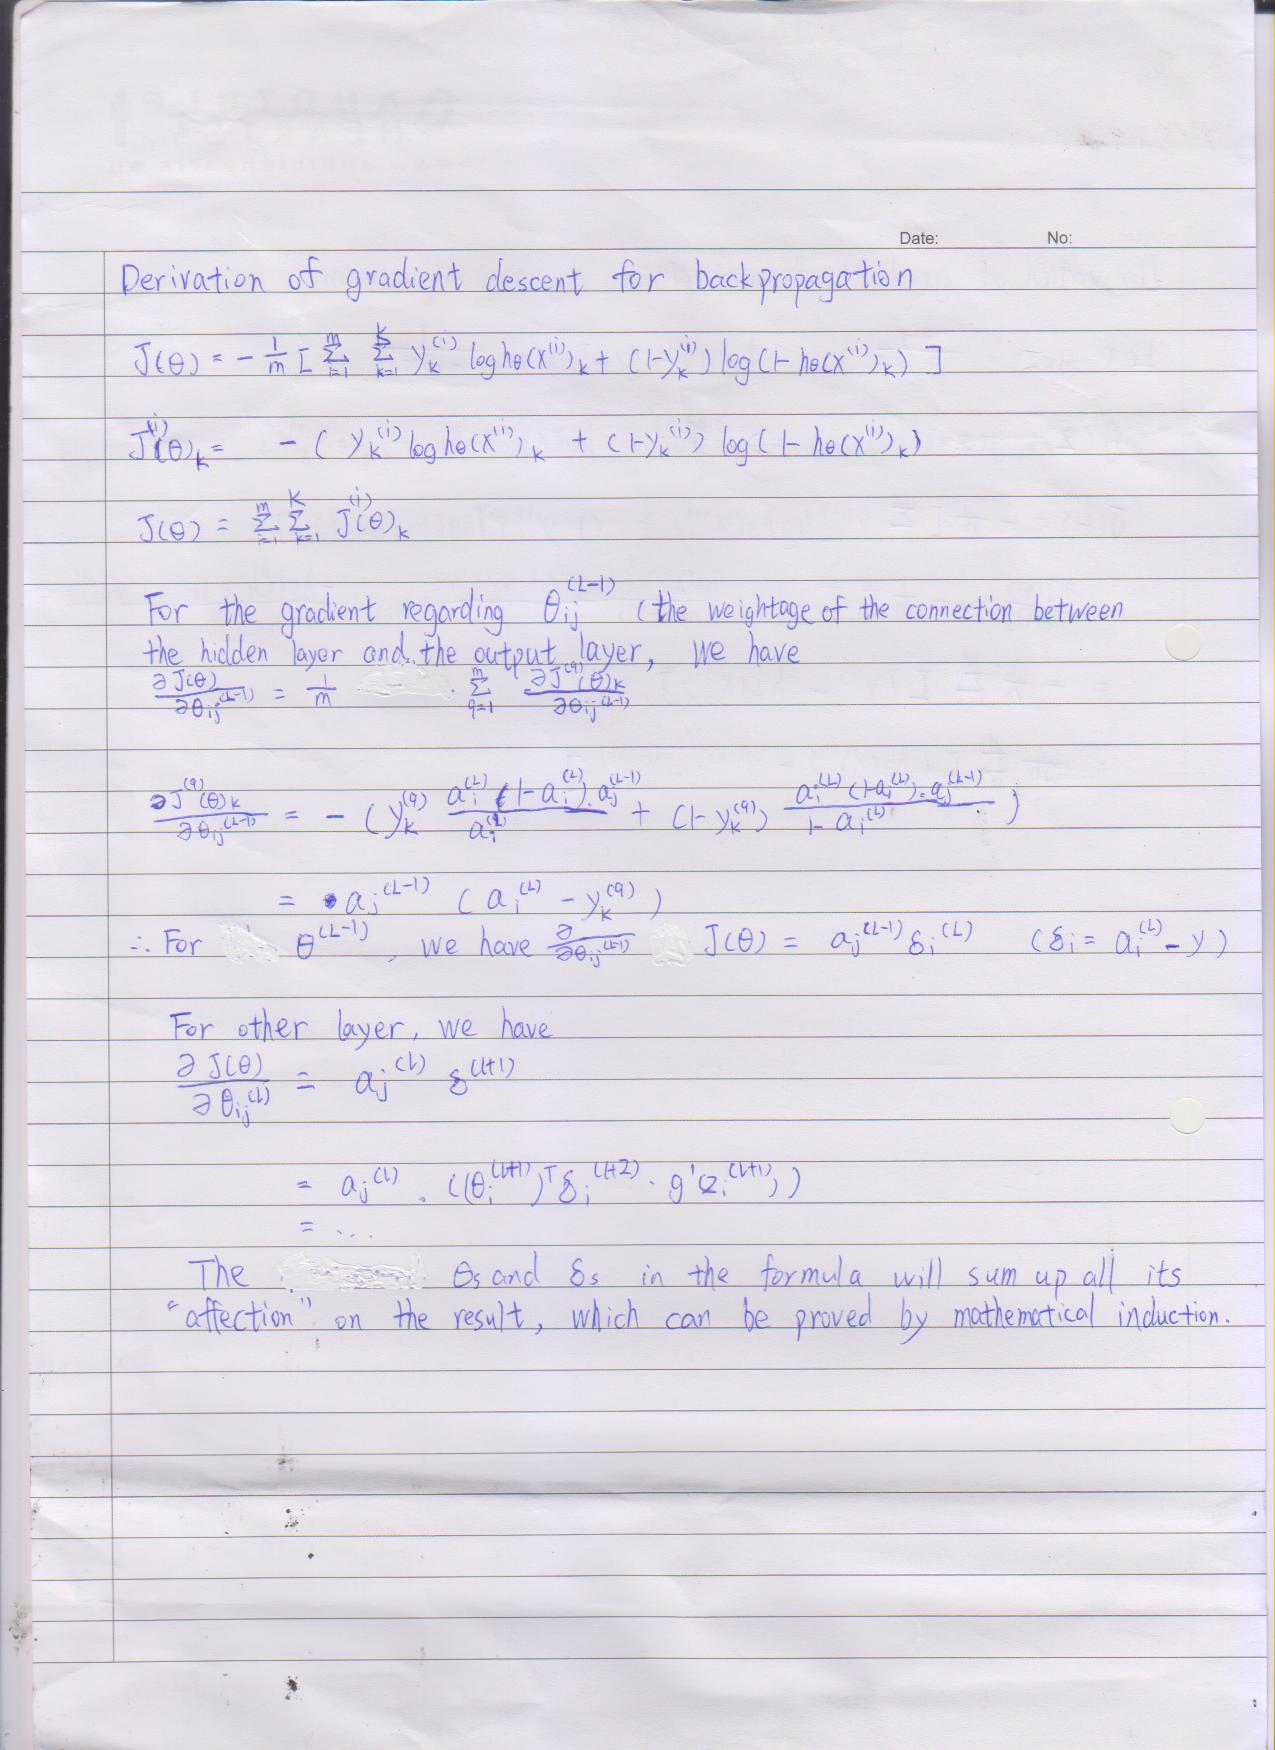 Date: No:
Derivation of gradient descent for backpropagation
J(θ) = - 1/m [ Σ_{i=1}^{m} Σ_{k=1}^{K} y_k^{(i)} log hθ(x^{(i)})_k + (1-y_k^{(i)}) log(1- hθ(x^{(i)})_k) ]
J^{(i)}(θ)_k = - ( y_k^{(i)} log hθ(x^{(i)})_k + (1-y_k^{(i)}) log(1- hθ(x^{(i)})_k)
J(θ) = Σ_{i=1}^{m} Σ_{k=1}^{K} J^{(i)}(θ)_k
For the gradient regarding θ_{ij}^{(L-1)} (the weightage of the connection between
the hidden layer and the output layer, we have
∂J(θ)/∂θ_{ij}^{(L-1)} = 1/m · Σ_{q=1}^{m} ∂J^{(q)}(θ)_k/∂θ_{ij}^{(L-1)}
∂J^{(q)}(θ)_k/∂θ_{ij}^{(L-1)} = - (y_k^{(q)} a_i^{(L)}(1-a_i^{(L)})·a_j^{(L-1)}/a_i^{(L)} + (1-y_k^{(q)}) a_i^{(L)}(1-a_i^{(L)})·a_j^{(L-1)}/1-a_i^{(L)} )
= a_j^{(L-1)} ( a_i^{(L)} - y_k^{(q)} )
∴ For θ^{(L-1)}, we have ∂/∂θ_{ij}^{(L-1)} J(θ) = a_j^{(L-1)} δ_i^{(L)} (δ_i = a_i^{(L)} - y)
For other layer, we have
∂J(θ)/∂θ_{ij}^{(l)} = a_j^{(l)} δ^{(l+1)}
= a_j^{(l)} . ((θ_i^{(l+1)})^T δ_i^{(l+2)} · g'(z_i^{(l+1)}))
= ...
The θs and δs in the formula will sum up all its
"affection" on the result, which can be proved by mathematical induction.